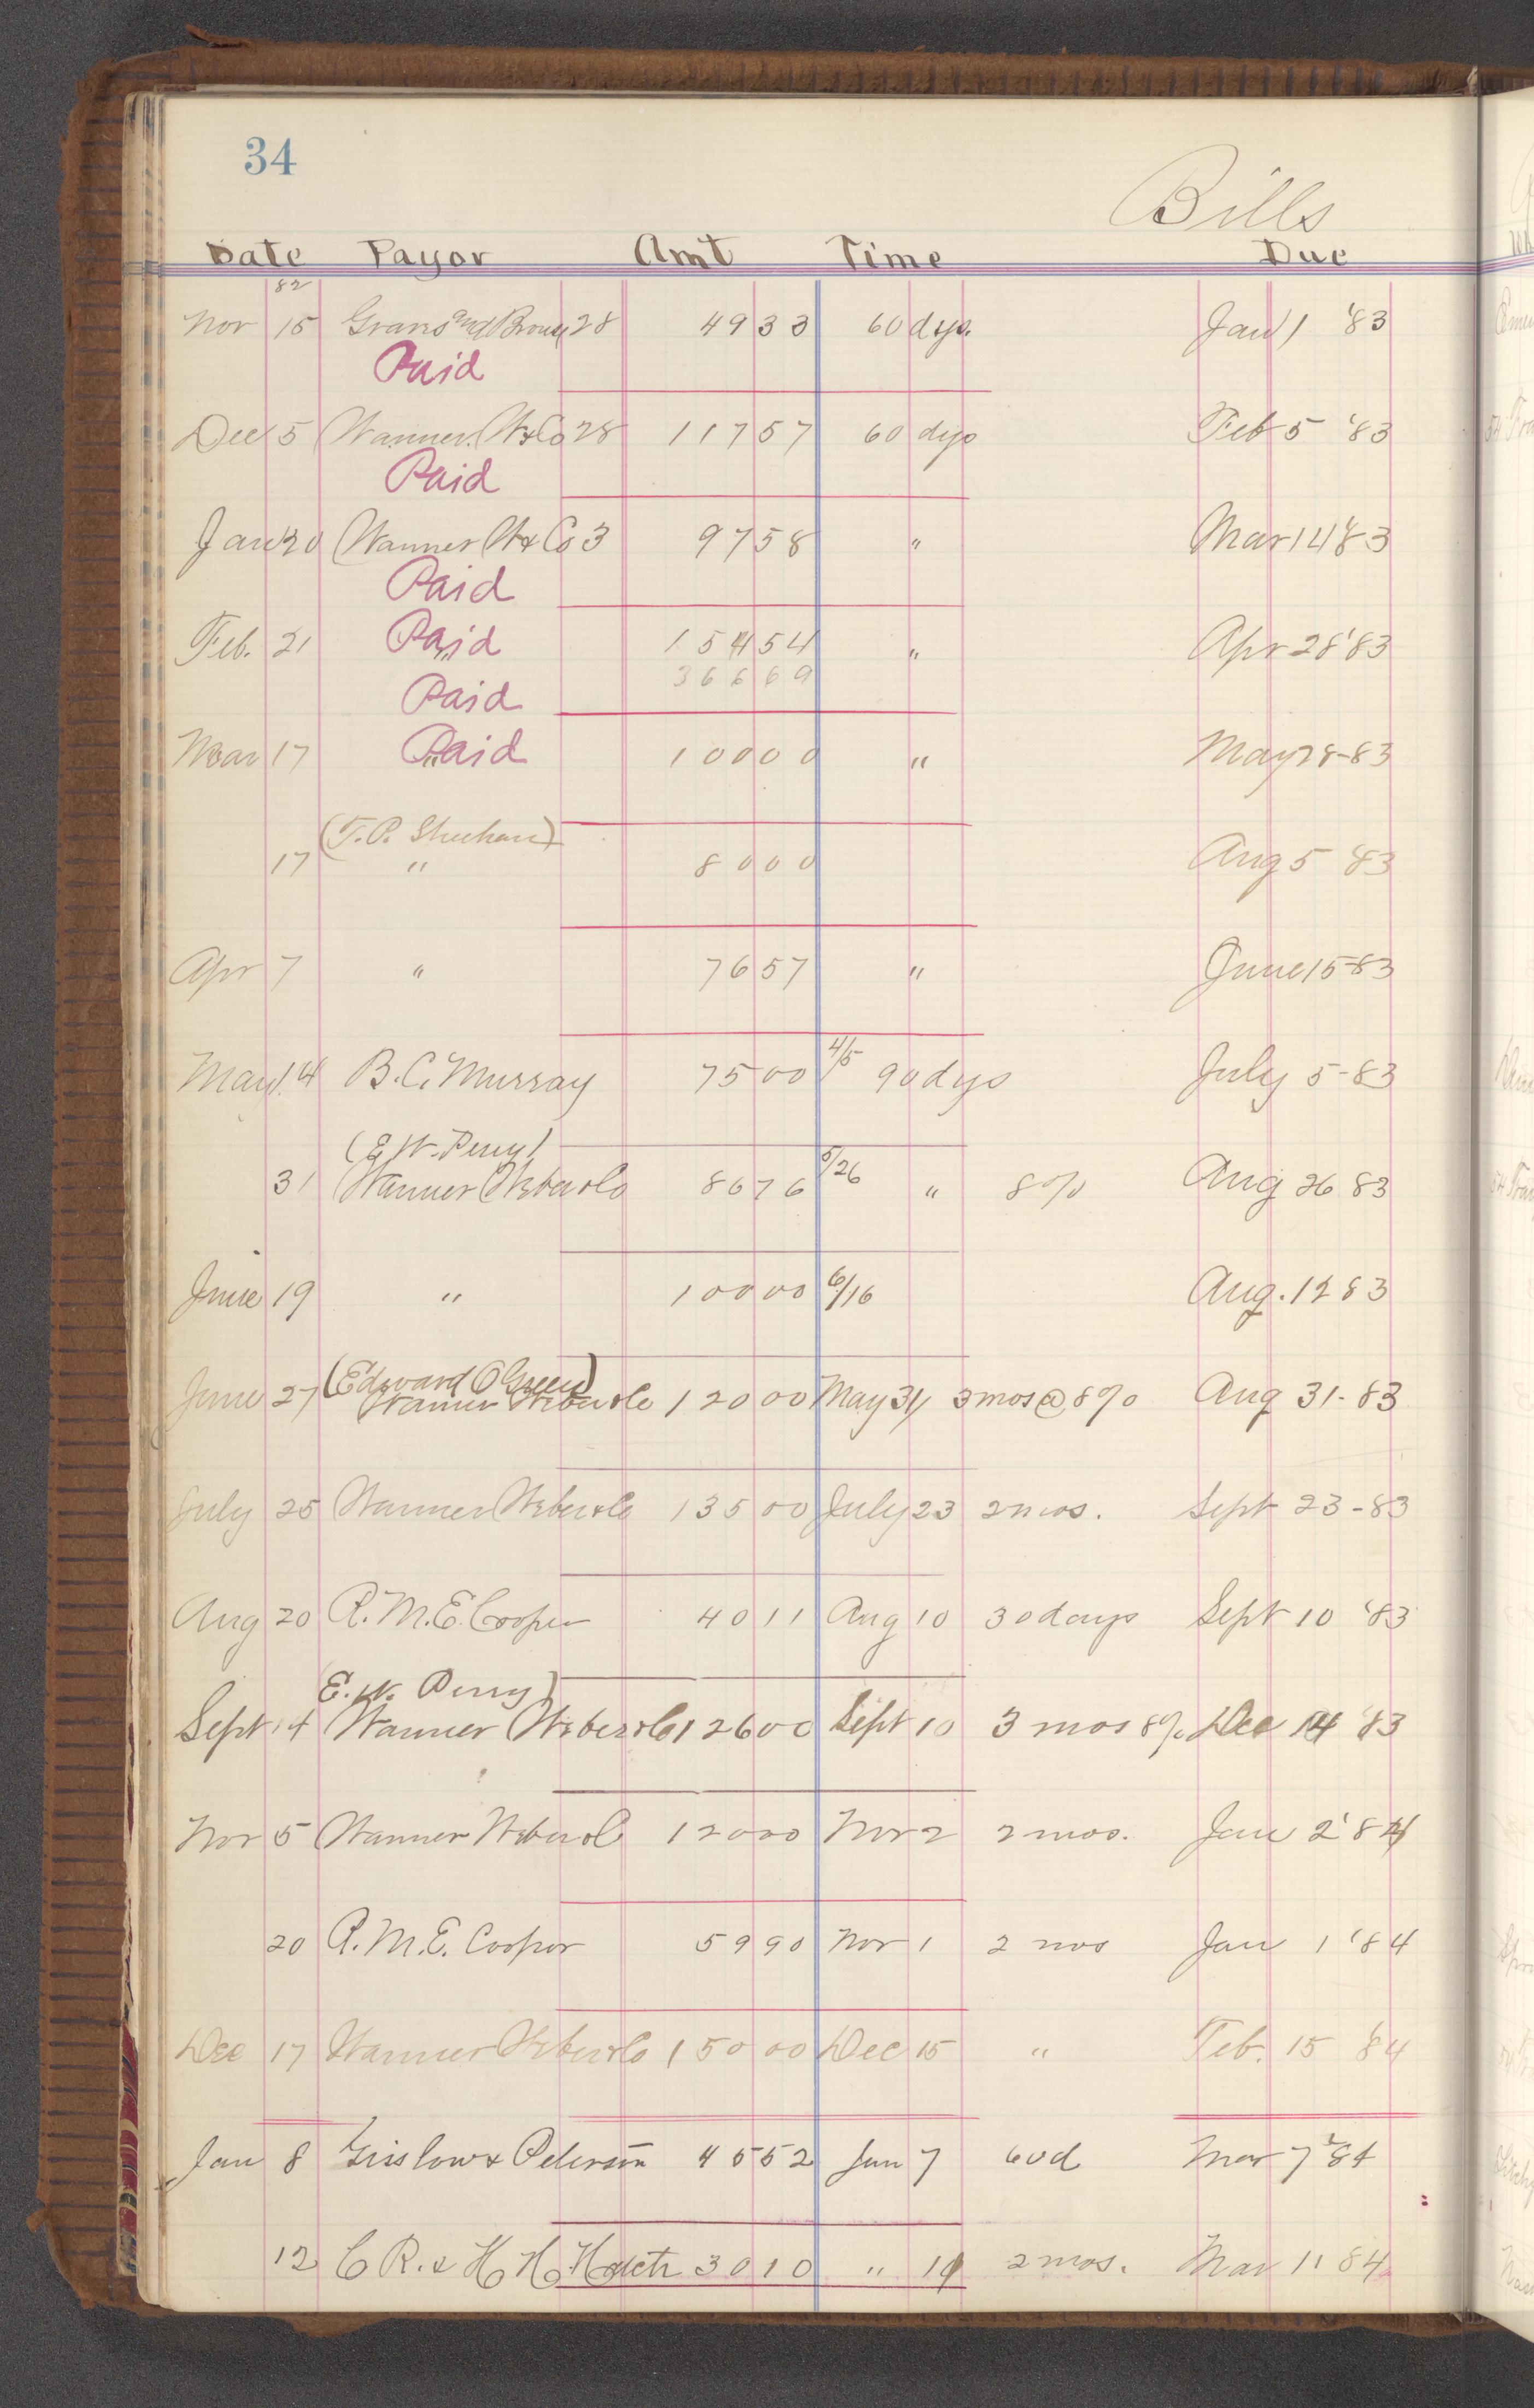 34
Bills
Date Payor Amt Time Due
82
Nov 15 28 49 33 60 dys. Jan 1 '83
Paid
Dec 5 Wanner W & Co 28 117 57 60 dys Feb 5 '83
Paid
Jan 20 Wanner W & Co 3 97 58 " Mar 14 '83
Paid
Feb. 21 " Paid 154 54 " Apr 28 '83
366 69
Paid
Mar 17 " Paid 100 00 " May 28-83
(T.P. Sheehan)
17 " 80 00 Aug 5 83
Apr 7 " 76 57 " June 15-83
May 14 B.C. Murray 75 00 4/5 90 dys July 5-83
(E W. Perry)
31 Wanner Weber & Co 86 76 5/26 " 8% Aug 26 83
June 19 " 100 00 6/16 Aug. 12 83
(Edward O Green)
June 27 Wanner Weber & Co 120 00 May 31/ 3 mos @ 8% Aug 31-83
July 25 Wanner Weber & Co 135 00 July 23 2 mos. Sept 23-83
Aug 20 R.M.E. Cooper 40 11 Aug 10 30 days Sept 10 '83
E. W. Perry)
Sept 14 Wanner Weber & Co 126 00 Sept 10 3 mos 8% Dec 14 '83
Nov 5 Wanner Weber & C 120 00 Nov 2 2 mos. Jan 2 '84
20 R.M.E. Cooper 59 90 Nov 1 2 mos Jan 1 '84
Dec 17 Wanner Weber & Co 150 00 Dec 15 " Feb. 15 84
Jan 8 Gisslow & Peterson 45 52 Jan 7 60d Mar 7 '84
12 C R. & H H Hatch 30 10 " 11 2 mos. Mar 11 84